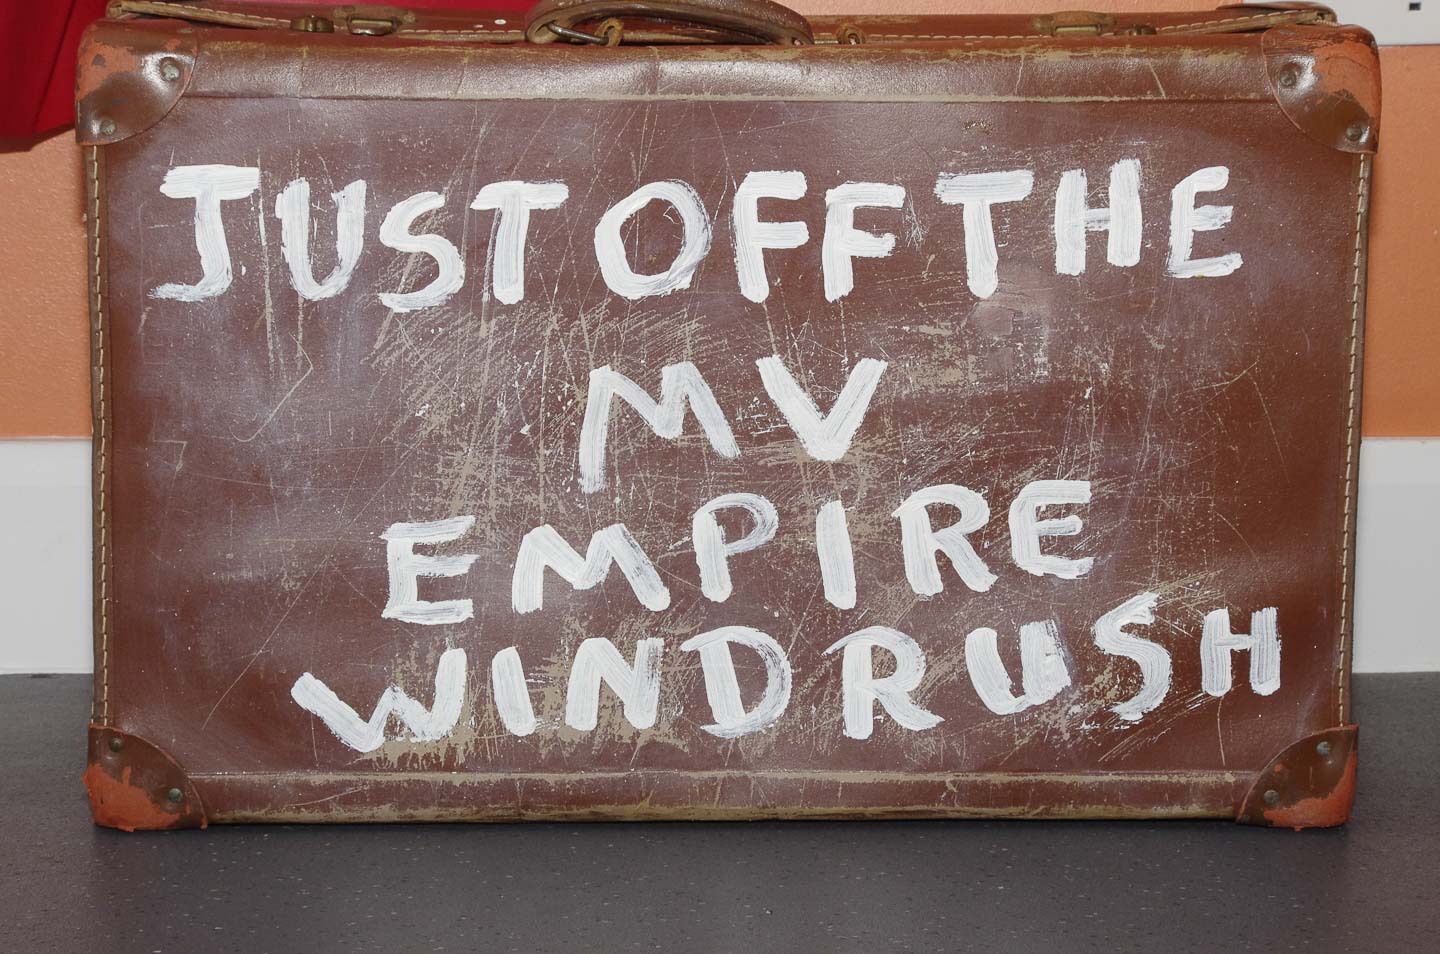 JUST OFF THE
MV
EMPIRE
WINDRUSH